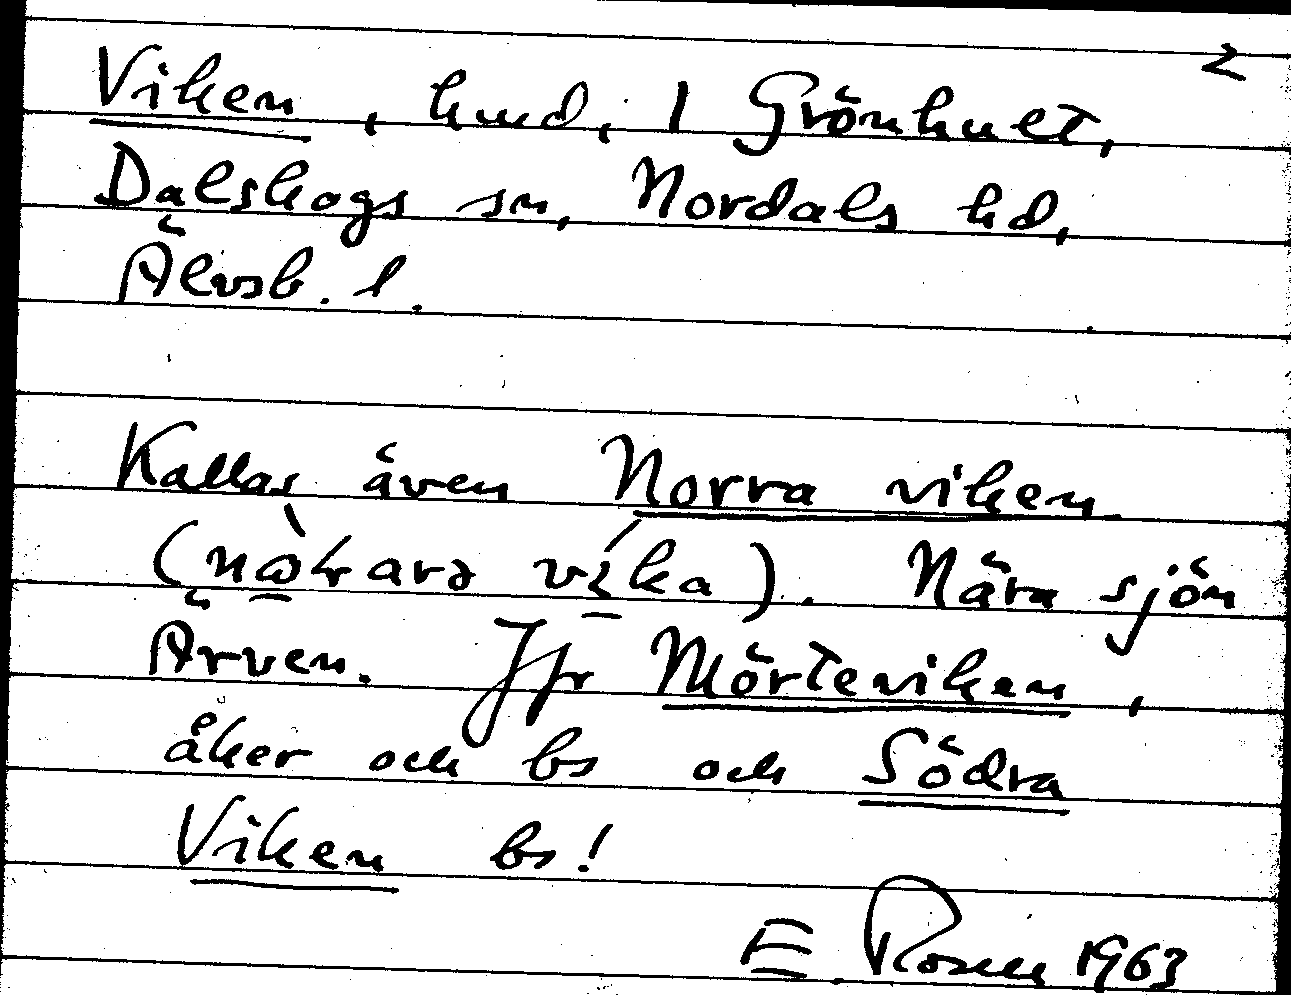 2
Viken, hmd, 1 Grönhult,
Dalskogs sn, Nordals hd,
Älvsb. l.
Kallas även Norra viken
. Nära sjön
Ärven. Jfr Mörteviken,
åker och bs och Södra
Viken bs!
E. Rosén 1963